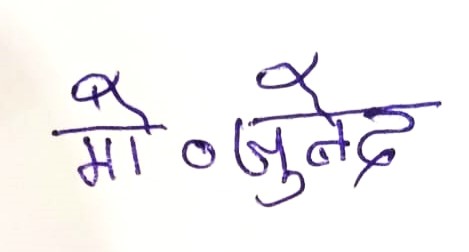 मो०जुनेद